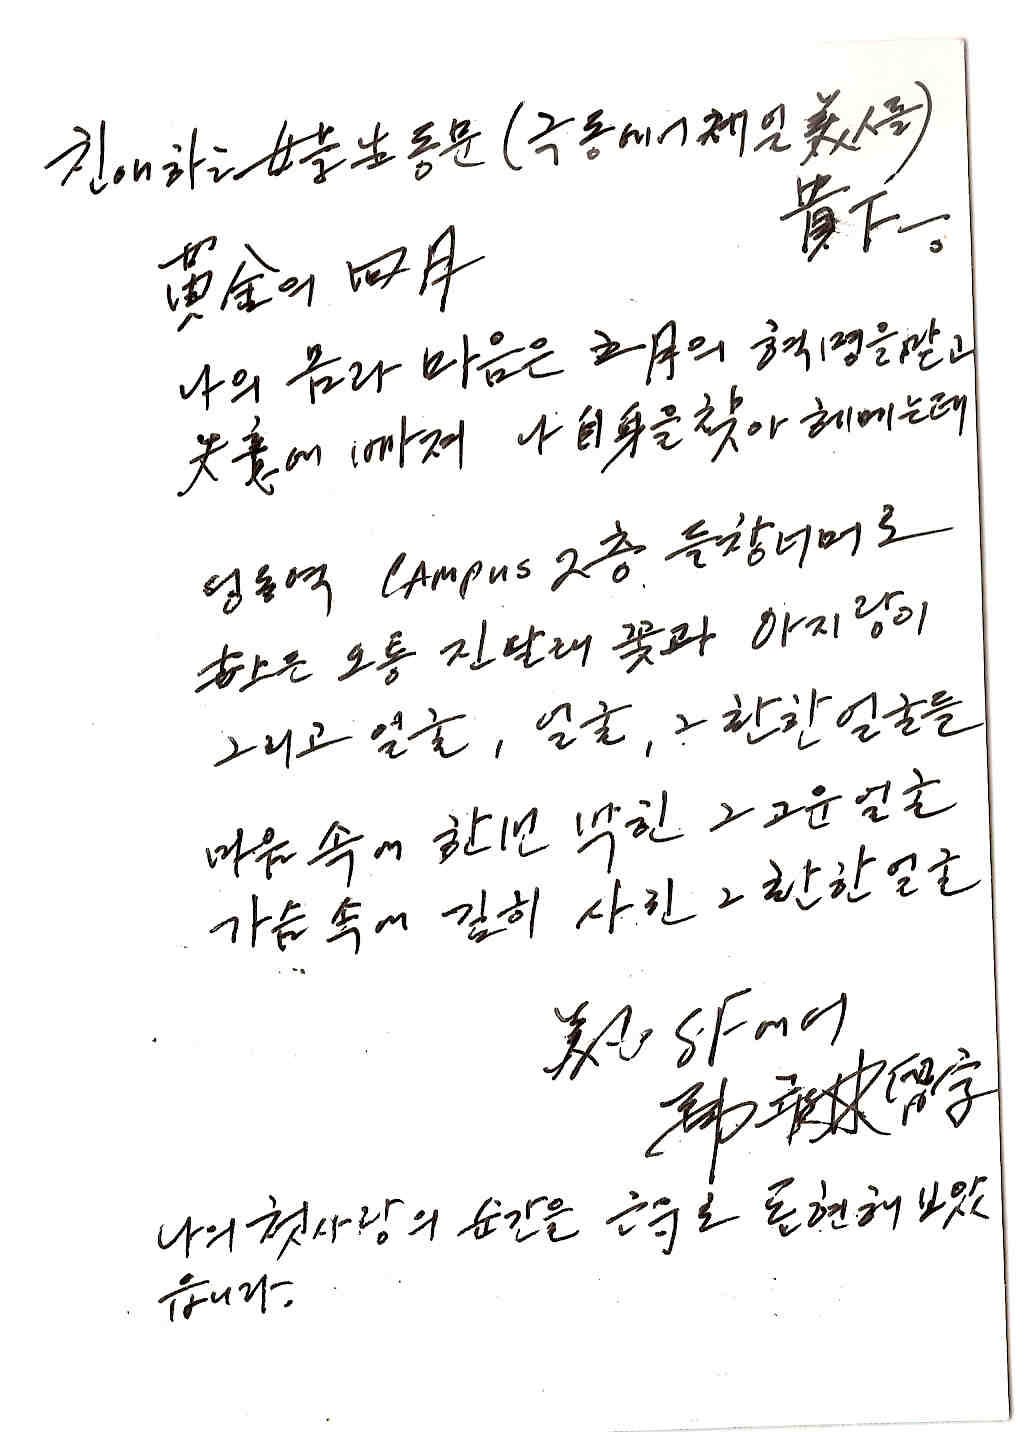 친애하는 女子 동문 (극동에서 제일 美人들)
貴下.
黃金의 四月
나의 몸과 마음은 五月의 혁명을 맞고
失意에 빠져 나 自身을 찾아 헤메는데
Campus 2층 들창너머로
온 오통 진달래 꽃과 아지랑이
그리고 얼굴, 얼굴, 그 환한 얼굴들
마음 속에 한번 박힌 그 고운 얼굴
가슴 속에 깊히 사긴 그 환한 얼굴
SF에서
留字
나의 첫사랑의 순간을 표현해 보았
읍니다.